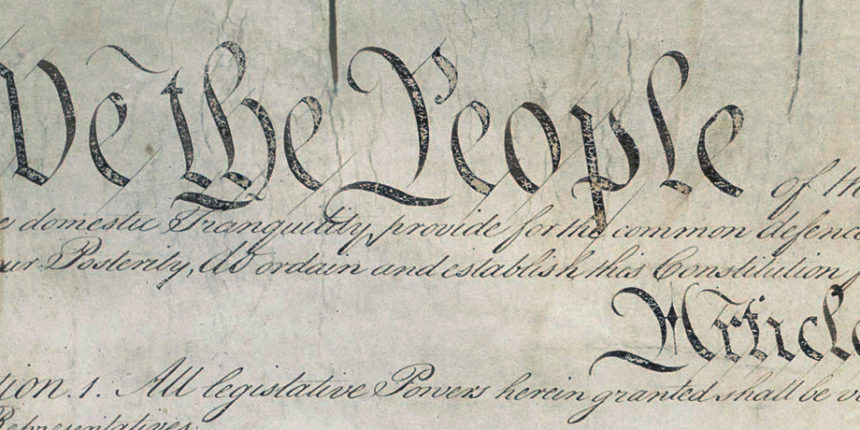 We the People of th
e domestic Tranquility, provide for the common defence
ur Posterity, do ordain and establish this Constitution f
Article
tion. 1. All legislative Powers herein granted shall be v
Representatives.